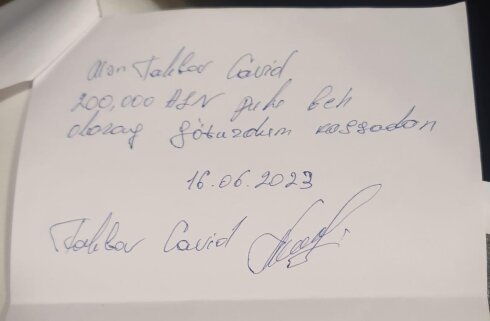 Mən Təkbər Cavid
200,000 AZN pulu beh
olaraq götürdüm kassadan
16.06.2023
Təkbər Cavid